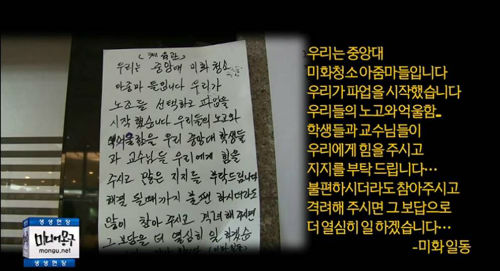 (체육관)
우리는 중앙대 미화청소
아줌마 들입니다 우리가
노조를 선택하고 파업을
시작 했습니다 우리들의 노고와
억울함을 우리 중앙대 학생들
과 교수님들 우리에게 힘을
주시고 많은 지지를 부탁드립니다
해결 될때까지 불편 하시더라도
많이 참아 주시고 격려해 주시면
그 보답을 더 열심히 일 하겠습
우리는 중앙대
미화청소 아줌마들입니다
우리가 파업을 시작했습니다
우리들의 노고와 억울함..
학생들과 교수님들이
우리에게 힘을 주시고
지지를 부탁 드립니다…
불편하시더라도 참아주시고
격려해 주시면 그 보답으로
더 열심히 일 하겠습니다…
-미화 일동
생생현장
미디어몽구
mongu.net
생생현장